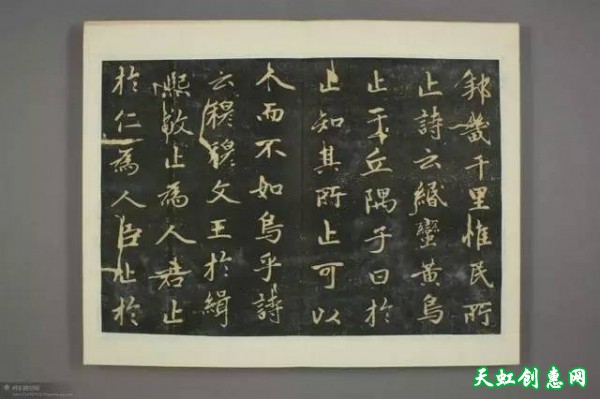 邦畿千里惟民所
止詩云緡蠻黃鳥
止于丘隅子曰於
止知其所止可以
人而不如鳥乎詩
云穆穆文王於緝
熙敬止為人君止
於仁為人臣止於
天虹创惠网